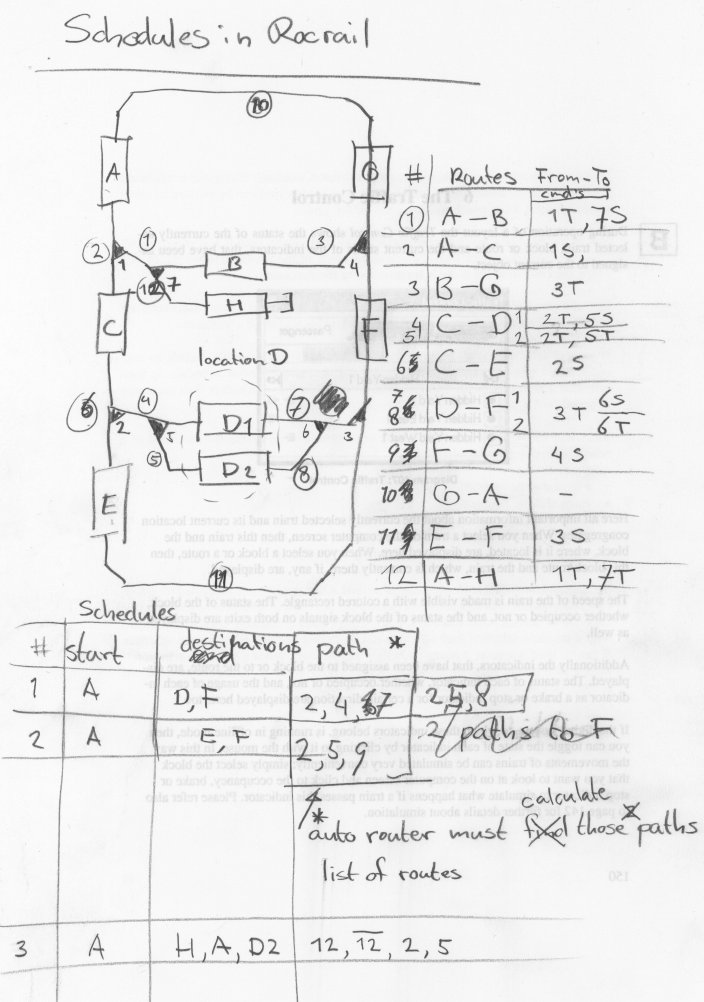 Schedules in Rocrail
10
A
G
# Routes From-To
cmd's
1 A-B 1T, 7S
2 A-C 1S,
3 B-G 3T
4 C-D 1 2T, 5S
5 2 2T, 5T
6 C-E 2S
7 D-F 1 3T 6S
8 2 6T
9 F-G 4S
10 G-A -
11 E-F 3S
12 A-H 1T, 7T
2 1 3
1 B 4
12 7
H
C
F
location D
4 7
2 5 D1 6 3
5 D2 8
E
11
Schedules
# start destinations path *
1 A D, F 2, 4, 7 2, 5, 8
2 A E, F 2, 5, 9 2 paths to F
calculate
* auto router must find those paths
list of routes
3 A H, A, D2 12, 12, 2, 5
150